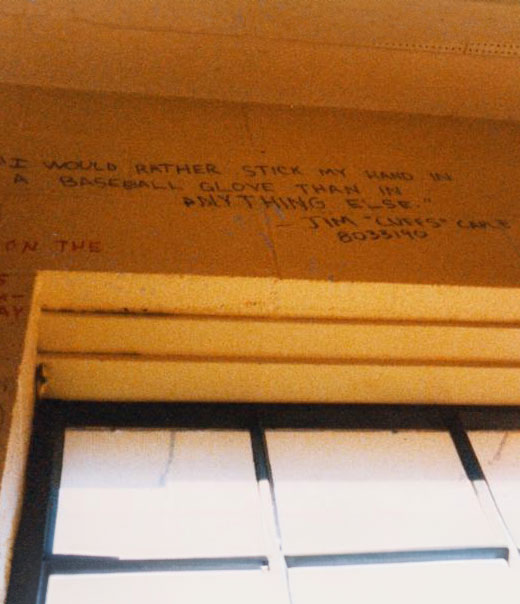 "I WOULD RATHER STICK MY HAND IN
A BASEBALL GLOVE THAN IN
ANYTHING ELSE."
— JIM "CUFFS"
8033190
ON THE